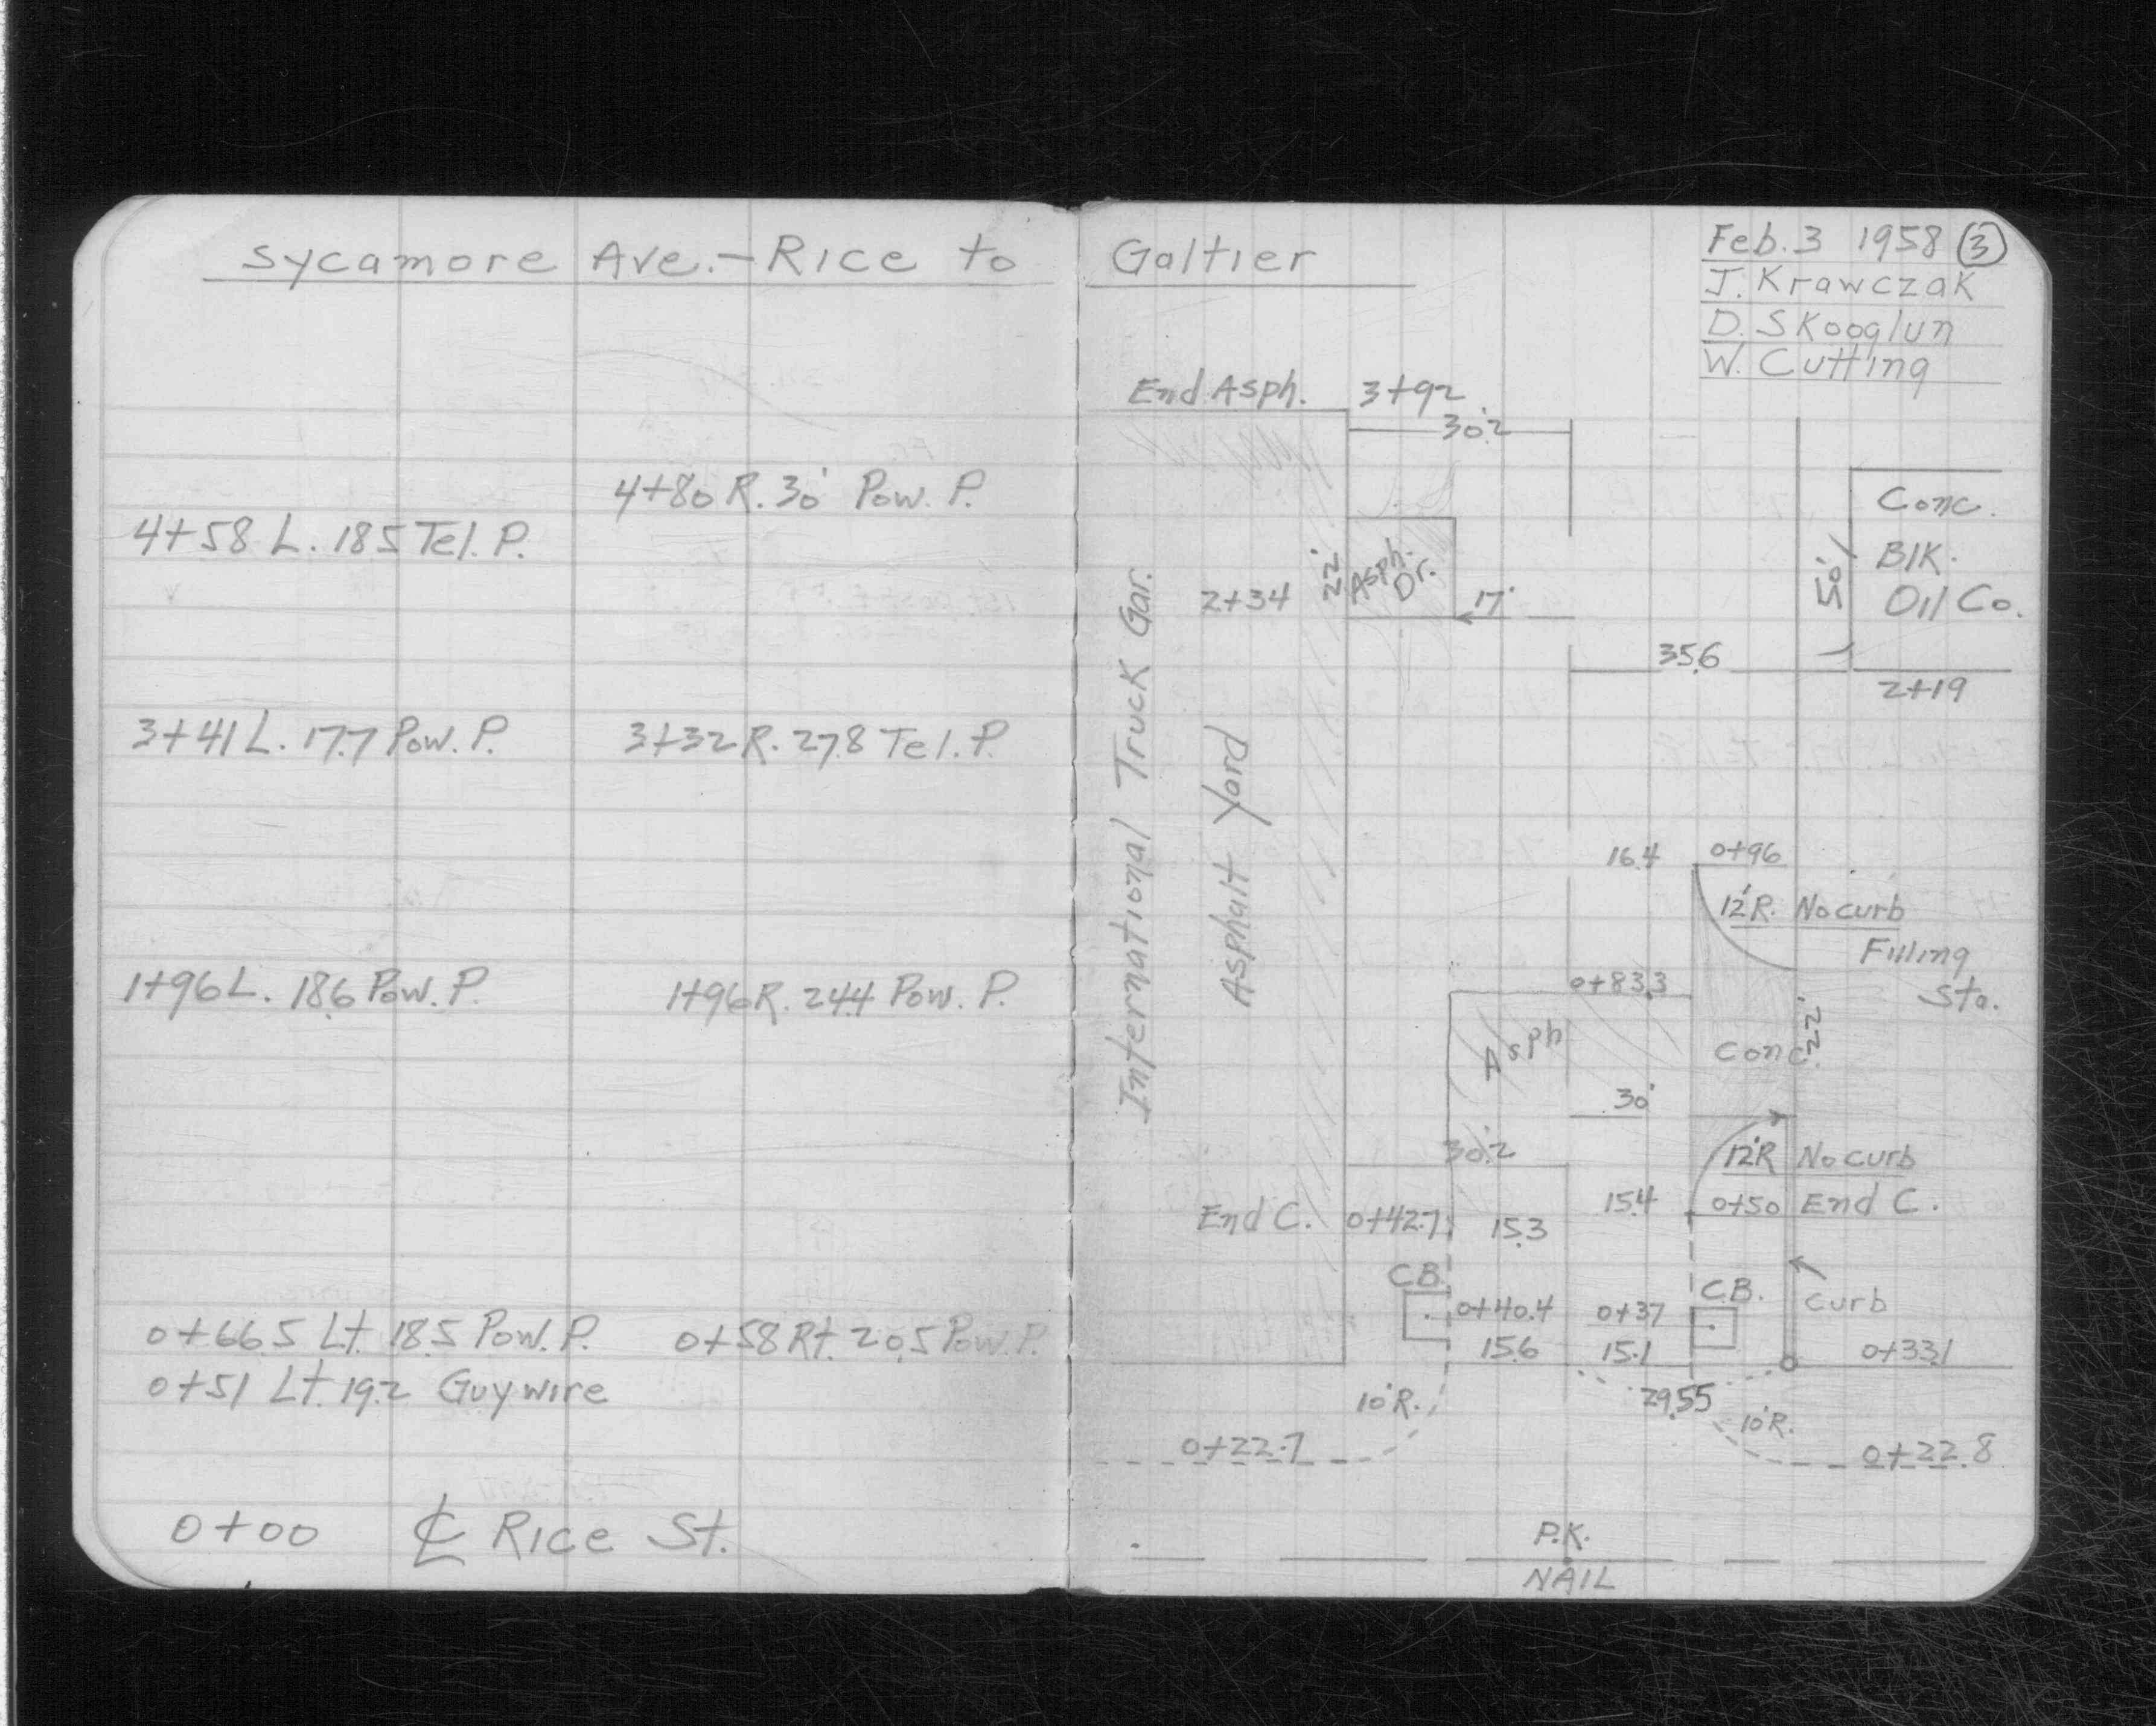 Sycamore Ave. - Rice to Galtier
Feb. 3 1958 (3)
J. Krawczak
D. Skooglun
W. Cutting
4+80 R. 30' Pow. P.
4+58 L. 18.5 Tel. P.
3+41 L. 17.7 Pow. P. 3+32 R. 27.8 Tel. P.
1+96 L. 18.6 Pow. P. 1+96 R. 24.4 Pow. P.
0+66.5 Lt. 18.5 Pow. P. 0+58 Rt. 20.5 Pow. P.
0+51 Lt. 19.2 Guy wire
0+00 ℄ Rice St.
End Asph. 3+92
30.2
Conc.
Blk.
Oil Co.
50'
22'
Asph.
Dr.
2+34
17'
35.6
2+19
International Truck Gar.
Asphalt Yard
16.4 0+96
12'R. No curb
Filling
Sta.
0+83.3
Asph
Conc.
22'
30'
30.2
12'R No curb
15.4 0+50 End C.
End C. 0+42.7 15.3
C.B. C.B.
0+40.4 0+37 curb
15.6 15.1 0+33.1
29.55
10'R. 10'R.
0+22.7 0+22.8
P.K.
NAIL